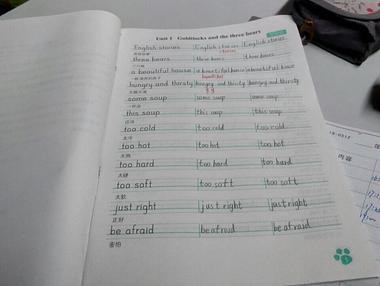 Unit 1 Goldilocks and the three bears
English stories English stories English stories
three bears three bears three bears
a beautiful house a beautiful house a beautiful house
hungry and thirsty hungry and thirsty hungry and thirsty
some soup some soup some soup
this soup this soup this soup
too cold too cold too cold
太冷
too hot too hot too hot
太热
too hard too hard too hard
太硬
too soft too soft too soft
太软
just right just right just right
正好
be afraid be afraid be afraid
害怕
内容